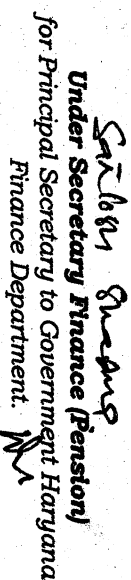 Under Secretary Finance (Pension)
for Principal Secretary to Government Haryana
Finance Department.